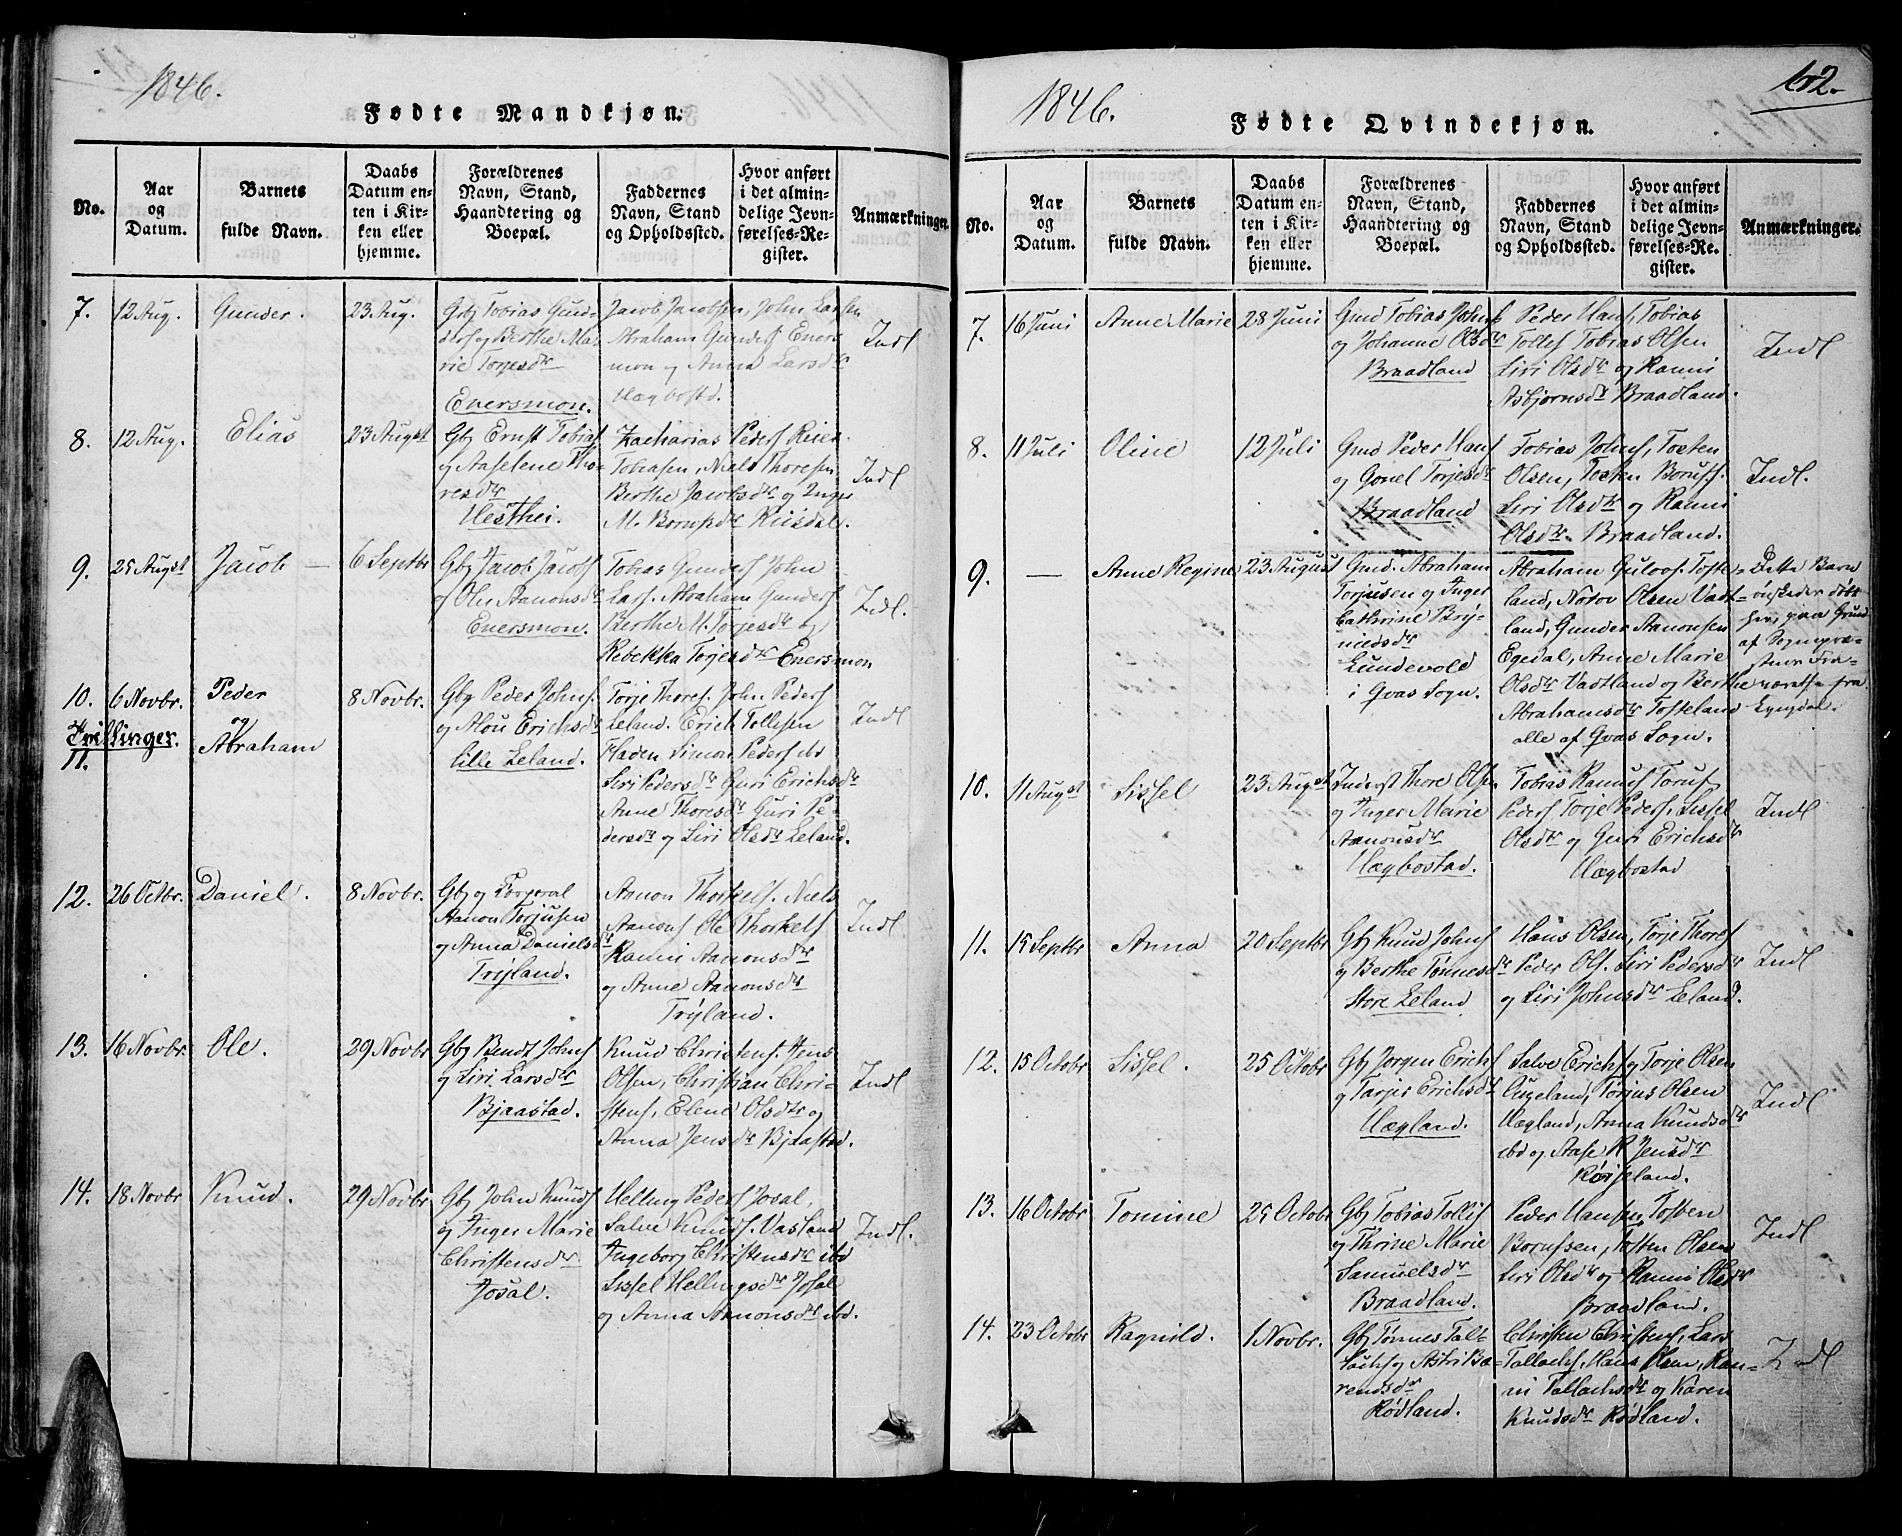 1846.
Fødte Mandkjøn.
No.
Aar og Datum.
Barnets fulde Navn.
Daabs Datum enten i Kirken eller hjemme.
Forældrenes Navn, Stand, Haandtering og Boepæl.
Faddernes Navn, Stand og Opholdssted.
Hvor anført i det almindelige Jevnførelses-Register.
Anmærkninger.
7. 12 Aug. Gunder. 23 Aug.
Gbj Tobias Gun-
ders og Berthe Ma-
rie Torjesdr
Enersmon.
Jacob Jacobsen, John Larsen
Abraham Gunders Eners-
mon og Anna Larsdr
Hægbostd.
Indl
8. 12 Aug. Elias 23 Augst
Gbj Ernst Tobias
og Aaselene Tho-
resdr
Hesthei.
Zacharias Peders Reier
Tobiasen, Niels Thoresen
Berthe Jacobsdr og Inger
M. Borufsdr Kiisdal.
Indl
9. 25 Augst Jacob — 6 Septbr
Gbj Jacob Jacobs
og Olu Aanonsdr
Enersmon.
Tobias Gunders John
Lars. Abraham Gunders
Berthe M. Torjesdr og
Rebekka Torjesdr Enersmon
Indl.
10. 6 Novbr. Peder 8 Novbr.
Tvillinger. og
11. Abraham
Gbj Peder Johns.
og Alou Erichsdr
Lille Leland.
Torje Thores. John Peders
Leland. Erich Tollefsen
Haden Simon Peders ibd
Siri Pedersdr Guri Erichsdr
Anne Thoresdr Guri Pe-
dersdr og Siri Olsdr Leland.
Indl
12. 26 Octbr. Daniel. 8 Novbr.
Gbj og
Aanon Torjusen
og Anna Danielsdr
Trÿland.
Aanon Thorkels. Niels
Aanons Ole Thorkels
Ramin Aanonsdr
og Anne Aanonsdr
Trÿland.
Indl
13. 16 Novbr. Ole. 29 Novbr
Gbj Bendt Johns
og Siri Larsdr
Bjaastad.
Knud Christens. Jens
Olsen, Christian Chri-
stens, Elene Olsdtr og
Anna Jensdr Bjaastad.
Indl
14. 18 Novbr Knud. 29 Novbr
Gbj John Knuds
og Inger Marie
Christensdr
Josal.
Helling Peders Josal,
Salve Knuds. Vasland
Ingeborg Christensdr ibd
Sissel Hellingsdr Josal
og Anna Aanonsdr ibd.
Indl.
1846.
62.
Fødte Qvindekjøn.
No.
Aar og Datum.
Barnets fulde Navn.
Daabs Datum enten i Kirken eller hjemme.
Forældrenes Navn, Stand, Haandtering og Boepæl.
Faddernes Navn, Stand og Opholdssted.
Hvor anført i det almindelige Jevnførelses-Register.
Anmærkninger.
7. 16 Juni Anne Marie 28 Juni
Gmd Tobias Johns
og Johanne Olsdr
Braadland
Peder Hans, Tobias
Tolles Tobias Olsen
Siri Olsdr og Ranni
Asbjørnsdr Braadland.
Indl
8. 11 Juli Oline 12 Juli
Gmd Peder Hans
og Gonel Torjesdr
Braadland
Tobias Johns, Tosten
Olsen, Tosten Borufs.
Siri Olsdtr og Ranni
Olsdr. Braadland.
Indl.
9. — Anne Regine 23 August
Gmd. Abraham
Torjusen og Inger
Cathrine Brÿ-
nildsdr
Lundevold
i Qvas Sogn.
Abraham Gulovs. Tofte-
land, Notov Olsen Vadt-
land, Gunder Aanonsen
Egedal, Anne Marie
Olsdr Vadtland og Berthe
Abrahamsdr Tofteland
alle af Qvas Sogn.
Dette Barn
ønskedes døbt
her, paa Grund
af Sognepræ-
stens Fra-
værelse fra
Lyngdal.
10. 11 Augst Sissel 23 Augst
Inderst Thore Ols.
og Inger Marie
Aanonsdr
Hægbostad.
Tobias Ranus Torus
Peders Torje Peders. Sissel
Olsdr og Guri Erichsdr
Hægbostad
Indl
11. 15 Septbr Anna 20 Septbr
Gbj Knud Johns
og Berthe Tønnesdr
Store Leland
Hans Olsen, Torje Thores
Peder Ols. Siri Pedersdr
og Siri Johnsdr Leland.
Indl
12. 15 Octobr Sissel. 25 Octobr
Gbj Jørgen Erichs
og Tarjer Erichsdr
Hægland.
Salve Erichs og Torje Olsen
Augeland, Torjus Olsen
Hægland, Anna Knudsdr
ibd og Aase R Jensdr
Røisseland.
Indl
13. 16 Octobr Tomine 25 Octobr
Gbj Tobias Tollis
og Thrine Marie
Samuelsdr
Braadland.
Peder Hansen, Tosten
Borufsen, Tosten Olsen
Siri Olsdr og Ranni Olsdr
Braadland.
Indl
14. 23 Octobr Ragnild. 1 Novbr.
Gbj Tønnes Tal-
lachs og Astri Be-
rendsdr
Rødland.
Christen Christens, Lars
Tallachs, Hans Olsen, Ran-
ni Tallachsdr og Karen
Knudsdr Rødland.
Indl